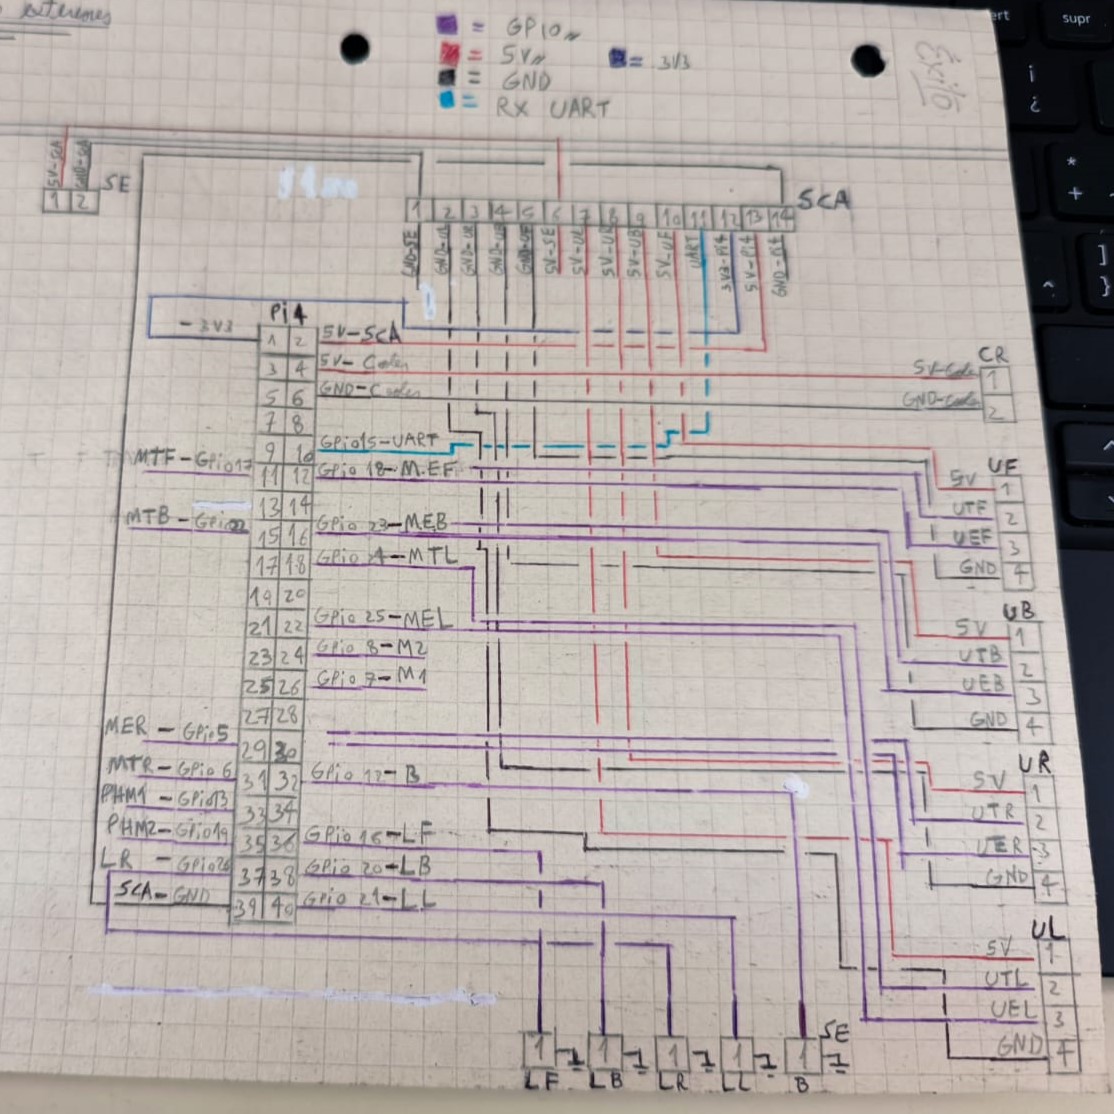 externes
= GPIO
= 5V
= 3V3
= GND
= RX UART
Exito
ert
supr
5V-SCA
GND-SCA
1 2
SE
SCA
1 2 3 4 5 6 7 8 9 10 11 12 13 14
GND-SE
GND-UL
GND-UR
GND-UB
GND-UF
5V-SE
5V-UL
5V-UR
5V-UB
5V-UF
UART
3V3-Pi4
5V-Pi4
GND-Pi4
Pi4
- 3V3
1 2
5V-SCA
3 4
5V-Cooler
5 6
GND-Cooler
7 8
9 10
GPio15-UART
MTF-GPio17
11 12
GPio 18-MEF
13 14
MTB-GPio22
15 16
GPio 23-MEB
17 18
GPio 24-MTL
19 20
21 22
GPio 25-MEL
23 24
GPio 8-M2
25 26
GPio 7-M1
27 28
MER - GPio5
29 30
MTR-GPio 6
31 32
GPio 12-B
PHM1-GPio13
33 34
PHM2-GPio19
35 36
GPio 16-LF
LR - GPio26
37 38
GPio 20-LB
SCA-GND
39 40
GPio 21-LL
CR
5V-Cooler
1
GND-Cooler
2
UF
5V 1
UTF 2
UEF 3
GND 4
UB
5V 1
UTB 2
UEB 3
GND 4
UR
5V 1
UTR 2
UER 3
GND 4
UL
5V 1
UTL 2
UEL 3
GND 4
SE
1 1 1 1 1
LF LB LR LL B